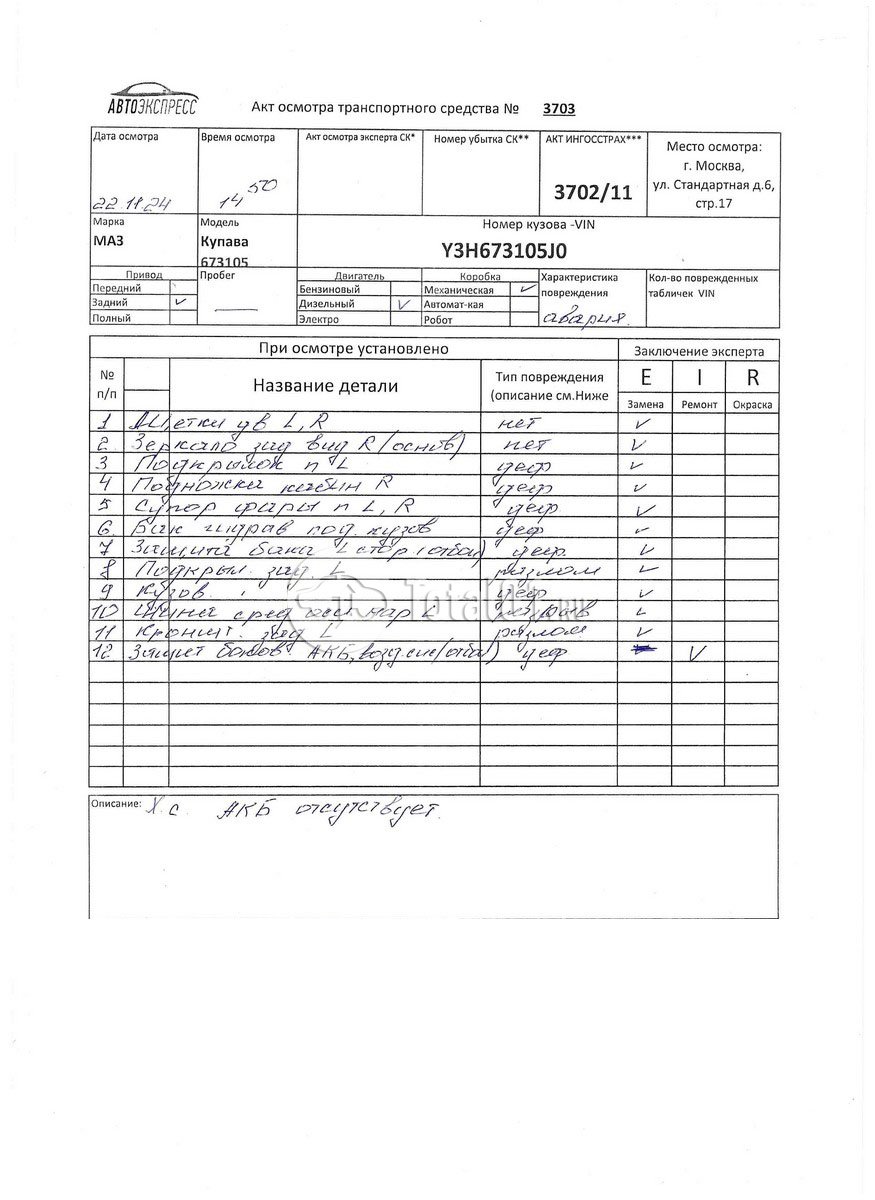 АВТОЭКСПРЕСС
Акт осмотра транспортного средства № 3703
Дата осмотра Время осмотра Акт осмотра эксперта СК* Номер убытка СК** АКТ ИНГОССТРАХ*** Место осмотра:
г. Москва,
22.11.24 14 50 3702/11 ул. Стандартная д.6,
стр.17
Марка Модель Номер кузова -VIN
МАЗ Купава Y3H673105J0
673105
Привод Пробег Двигатель Коробка Характеристика Кол-во поврежденных
Передний Бензиновый Механическая ✓ повреждения табличек VIN
Задний ✓ — Дизельный ✓ Автомат-кая авария
Полный Электро Робот
При осмотре установлено Заключение эксперта
№ п/п Название детали Тип повреждения (описание см.Ниже E I R
Замена Ремонт Окраска
1 Щетки дв L, R нет ✓
2 Зеркало зад вид R (основ) нет ✓
3 Подкрылок п L деф ✓
4 Подножка кабин R деф ✓
5 фары п L, R деф ✓
6 Бак гидрав под. кузов деф ✓
7 Защита бака L стор (отбой) деф ✓
8 Подкрыл. зад L разлом ✓
9 Кузов. деф ✓
TotalKit.RU
10 Шина сред оси нар L разрыв ✓
11 Кроншт. зад L разлом ✓
12 Защит боков. АКБ, возд.сис (отбой) деф ✓
Описание: Х.с. АКБ отсутствует.